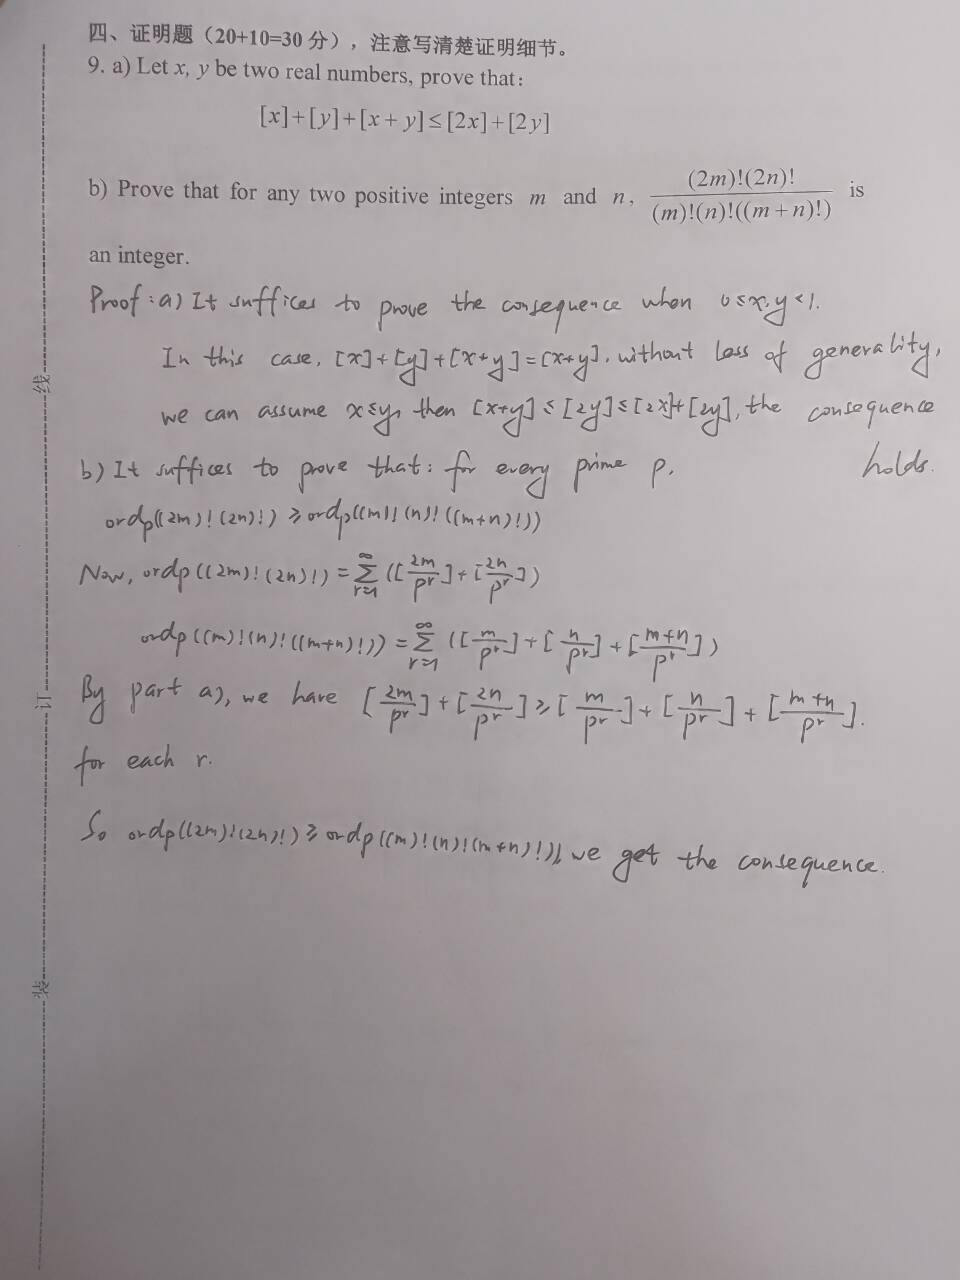 四、证明题（20+10=30 分），注意写清楚证明细节。
9. a) Let x, y be two real numbers, prove that:
[x]+[y]+[x+y]≤[2x]+[2y]
b) Prove that for any two positive integers m and n, (2m)!(2n)! / (m)!(n)!((m+n)!) is
an integer.
Proof: a) It suffices to prove the consequence when 0≤x,y<1.
In this case, [x]+[y]+[x+y]=[x+y], without loss of generality,
we can assume x≤y, then [x+y]≤[2y]≤[2x]+[2y], the consequence
holds.
b) It suffices to prove that: for every prime p,
ordp((2m)!(2n)!) ≥ ordp((m)!(n)!((m+n)!))
Now, ordp((2m)!(2n)!) = ∑_{r=1}^{∞} ([2m/p^r]+[2n/p^r])
ordp((m)!(n)!((m+n)!)) = ∑_{r=1}^{∞} ([m/p^r]+[n/p^r]+[m+n/p^r])
By part a), we have [2m/p^r]+[2n/p^r] ≥ [m/p^r]+[n/p^r]+[m+n/p^r].
for each r.
So ordp((2m)!(2n)!) ≥ ordp((m)!(n)!(m+n)!)), we get the consequence.
线
订
装